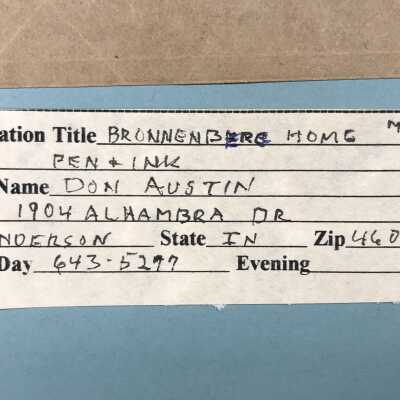 ation Title BRONNENBERG HOME M
PEN & INK
Name DON AUSTIN
1904 ALHAMBRA DR
NDERSON State IN Zip 460
Day 643-5277 Evening